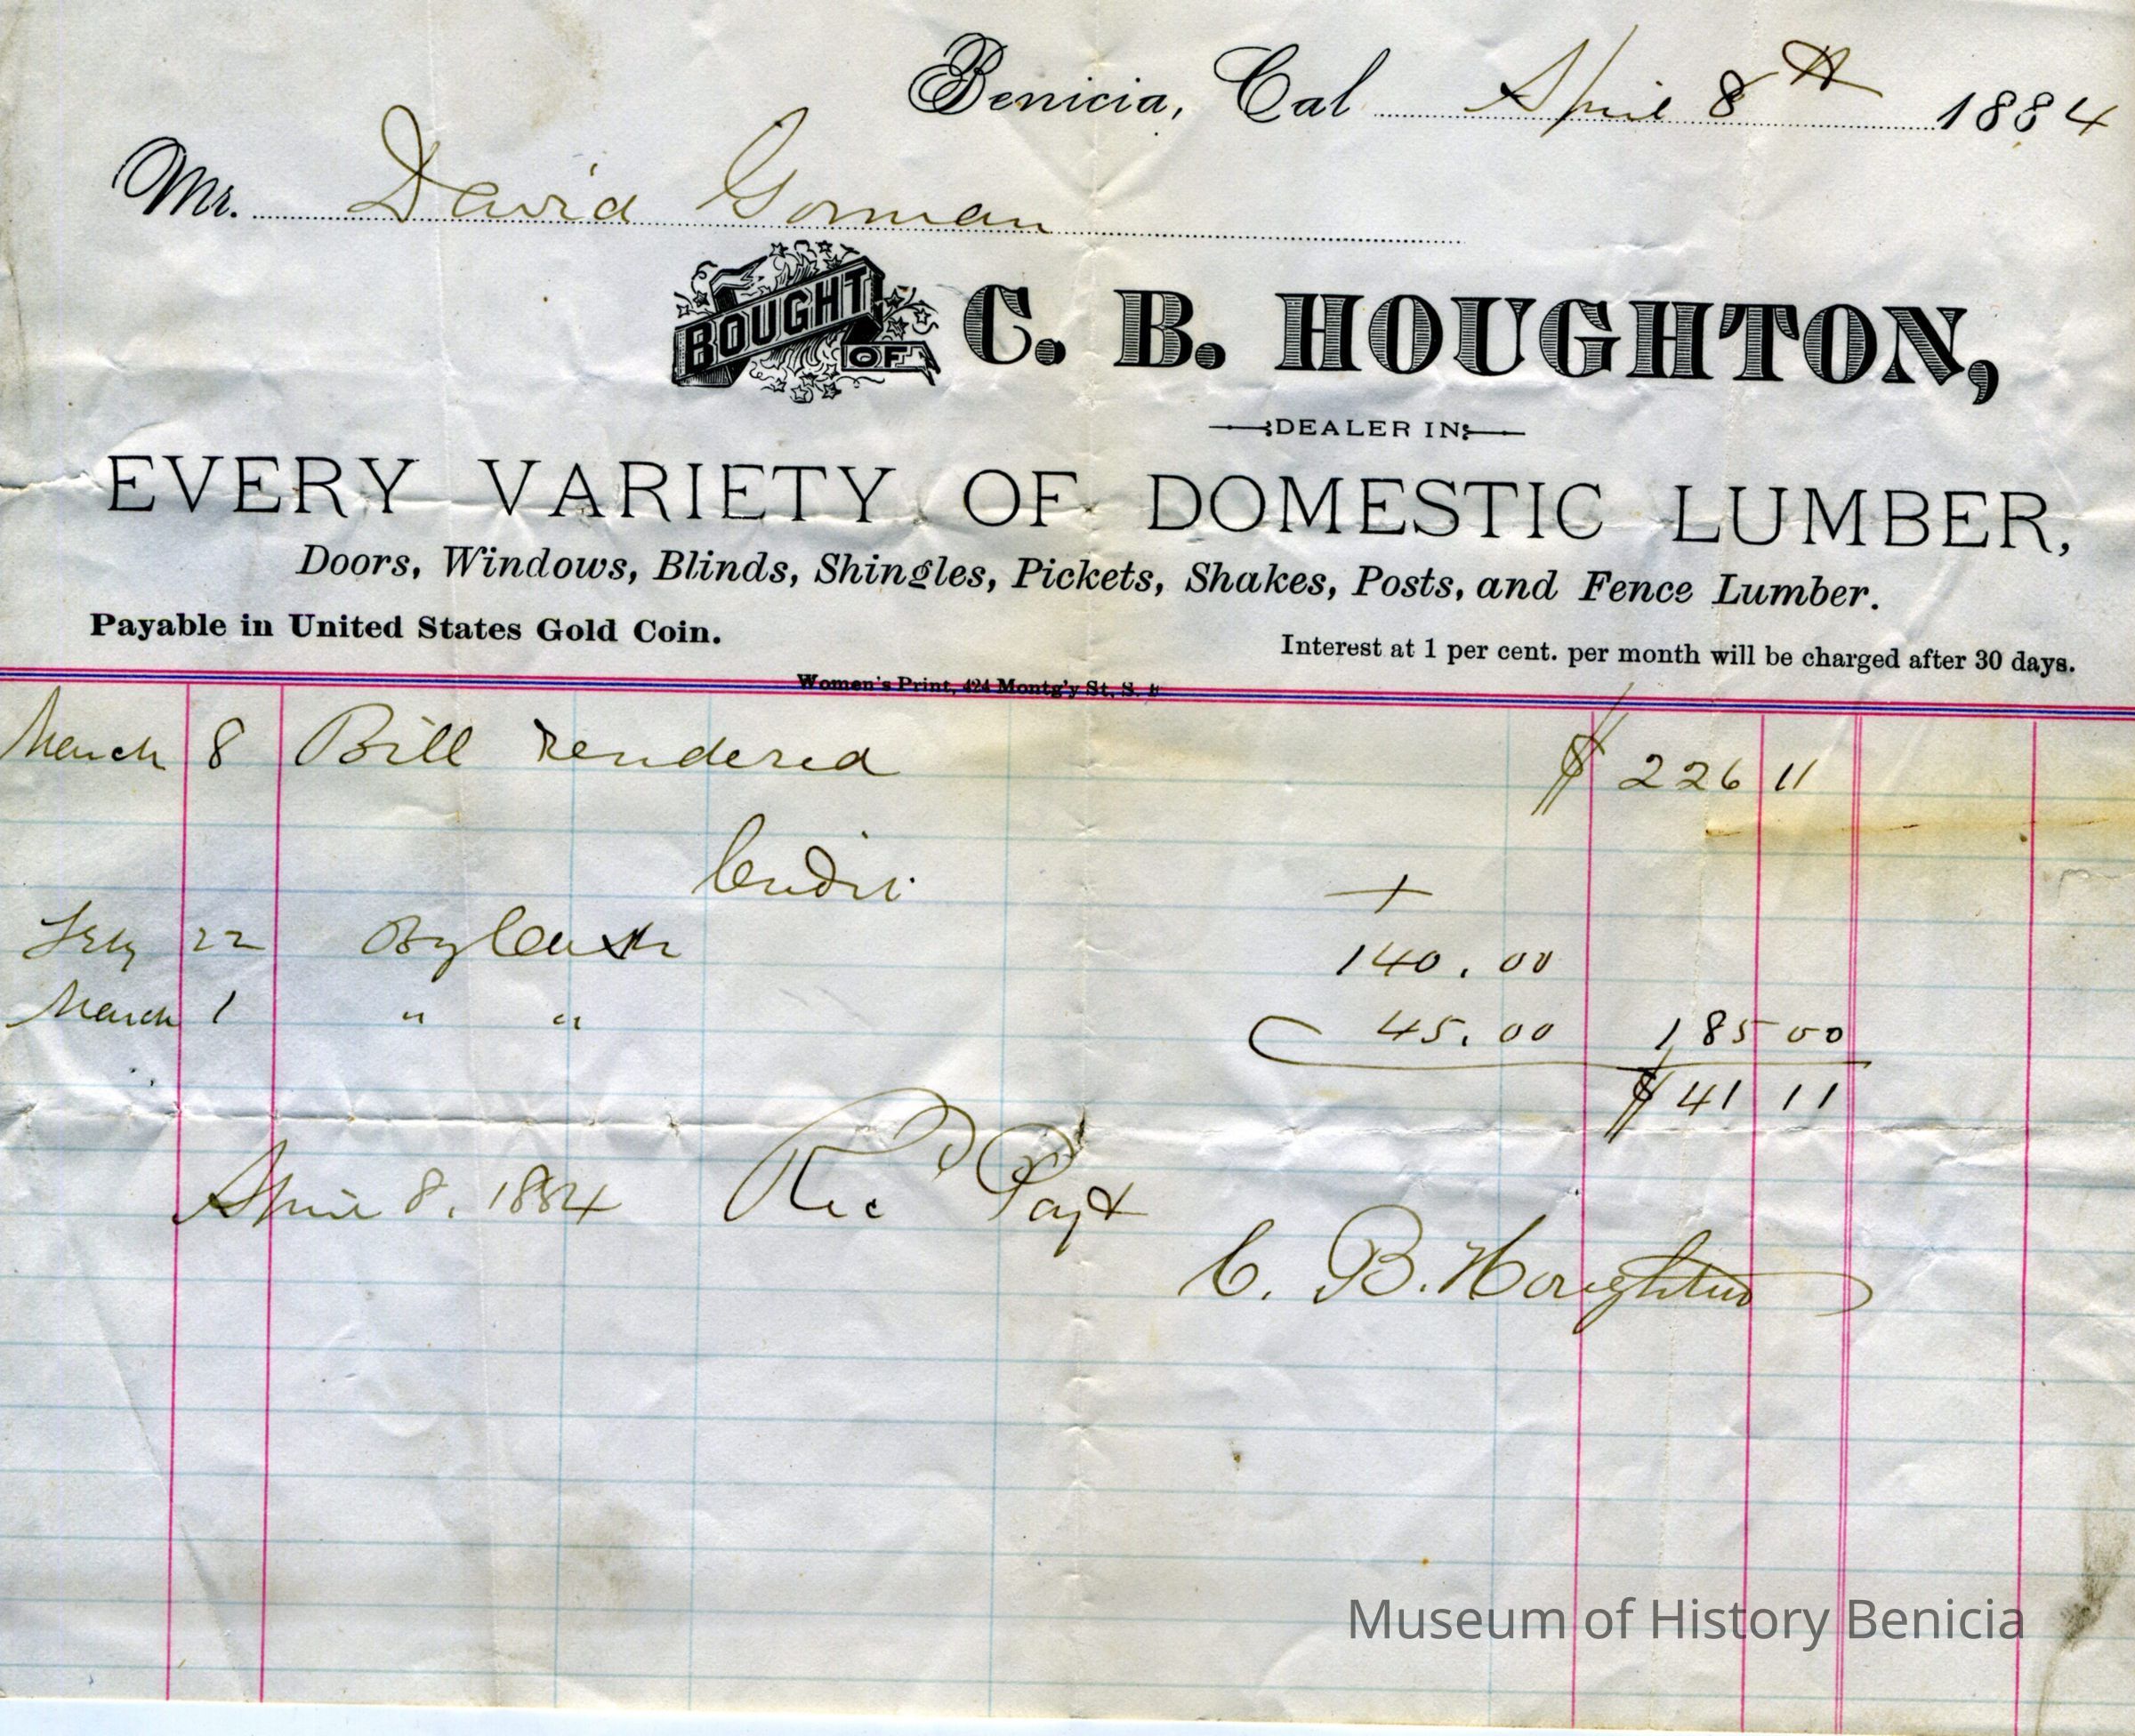 Benicia, Cal April 8th 1884
Mr. David Gorman
BOUGHT OF C. B. HOUGHTON,
DEALER IN
EVERY VARIETY OF DOMESTIC LUMBER,
Doors, Windows, Blinds, Shingles, Pickets, Shakes, Posts, and Fence Lumber.
Payable in United States Gold Coin.
Interest at 1 per cent. per month will be charged after 30 days.
Women's Print, 424 Montg'y St, S. F
March 8 Bill rendered $ 226 11
Credit
Feby 22 By Cash 140.00
March 1 " " 45.00 185 00
$ 41 11
April 8. 1884 Rec d Payt
C. B. Houghton
Museum of History Benicia